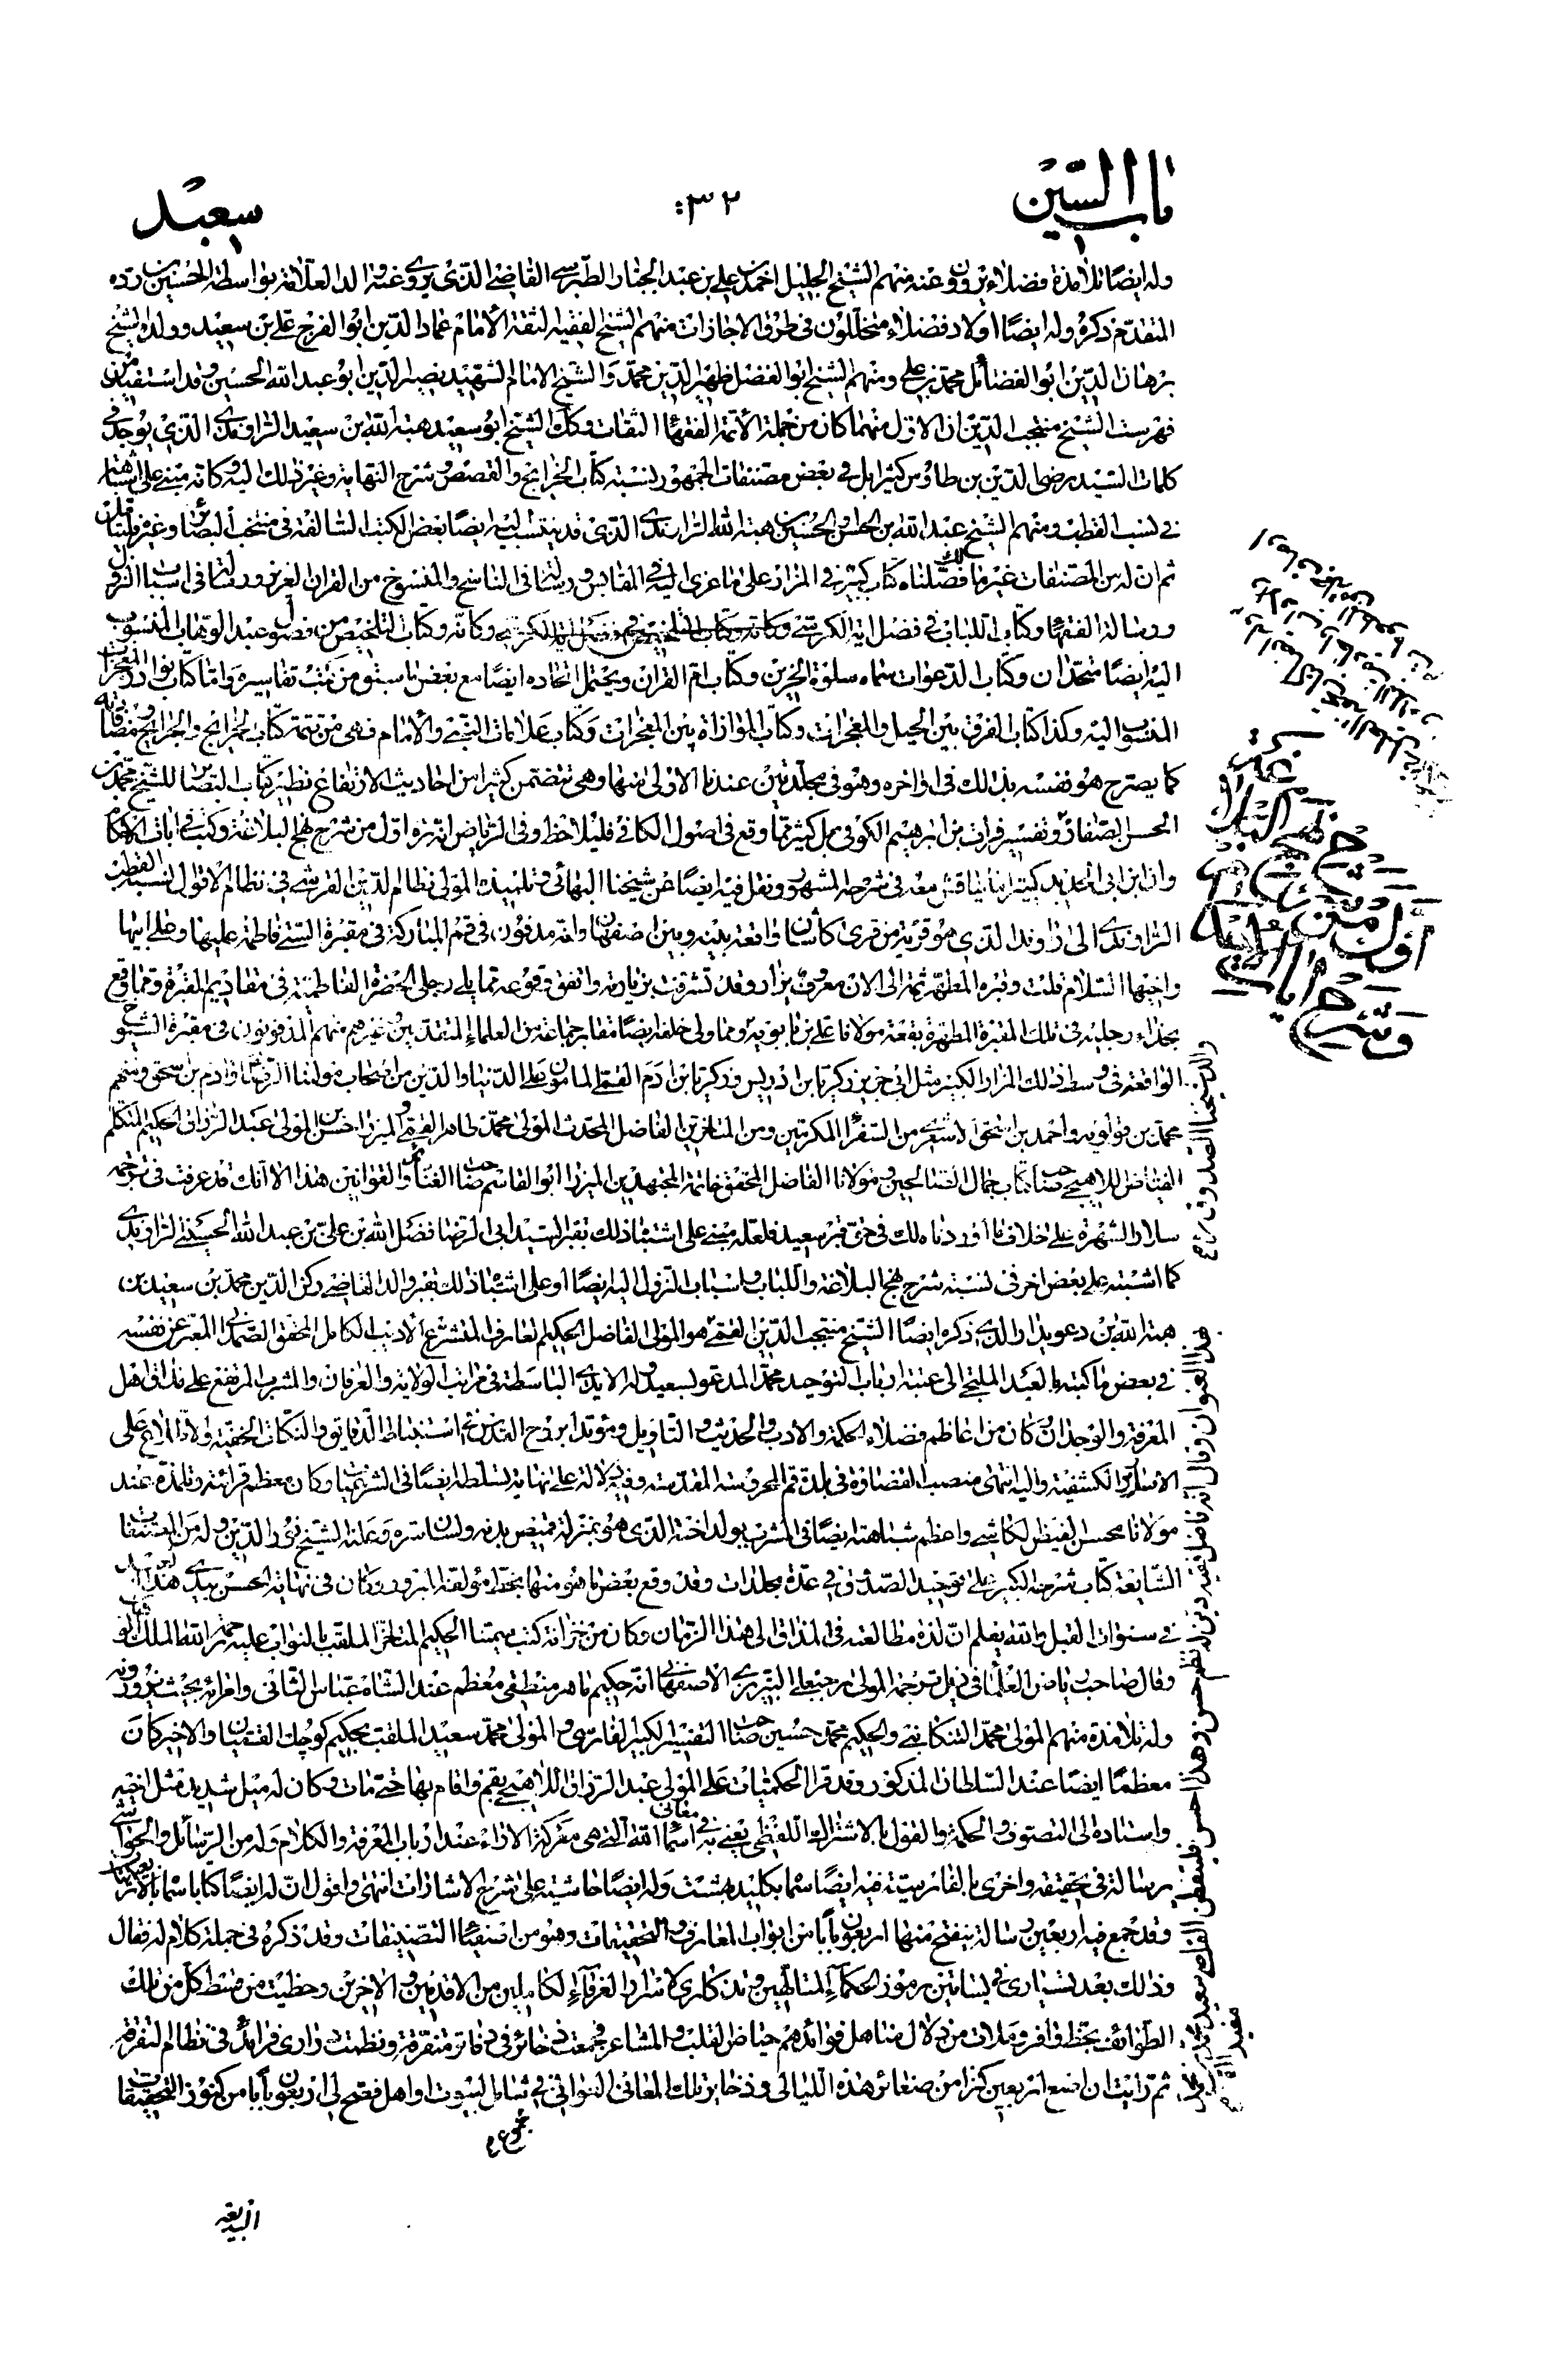 باب السين
٣٠٢
سعيد
وله ايضًا تلامذة فضلاء يروون عنه منهم الشيخ الجليل احمد بن علي بن عبد الجبار الطبرسي القاضي الذي يروي عنه والد العلامة بواسطة الحسين بن رده
المتقدم ذكره وله ايضًا اولاد فضلاء متخللون في طرق الاجازات منهم الشيخ الفقيه الثقة الأمام عماد الدين ابو الفرج علي بن سعيد وولده الشيخ
برهان الدين ابو الفضائل محمد بن علي ومنهم الشيخ ابو الفضل ظهير الدين محمد والشيخ الامام الشهيد نصير الدين ابو عبد الله الحسين وقد استفيد من
فهرست الشيخ منتجب الدين ان الاول منهما كان من جملة الأئمة الفقهاء الثقات وكك الشيخ ابو سعيد هبة الله بن سعيد الراوندي الذي يوجد في
كلمات السيد رضي الدين بن طاوس كثيرا بل في بعض مصنفات الجمهور نسبة كتاب الخرايج والقصص وشرح النهاية وغير ذلك اليه وكانه مبني على اشتباه
في نسب القطب ومنهم الشيخ عبد الله بن الحسن والحسين هبة الله الراوندي الذي قد ينتسب اليه ايضًا بعض الكتب السالفة في منتخب البصائر وغيره
ثم ان له من المصنفات غير ما فصلناه لك كتاب كبير في المزار على ما عزى اليه في المقابس ورسالة في الناسخ والمنسوخ من القران العزيز ورسالة في اسباب النزول
ورسالة الفقهاء وكتاب اللباب في فضل اية الكرسي وكانه وكتاب التلخيص من فصول عبد الوهاب المنسوب
اليه ايضًا متحدان وكتاب الدعوات سماه سلوة الحزين وكتاب ام القران ويحتمل اتحاده ايضًا مع بعض ما سبق من كتب تفاسيره واما كتاب نوادر المعجزات
المنسوب اليه وكذا كتاب الفرق بين الحيل والمعجزات وكتاب الموازاة بين المعجزات وكتاب علامات النبي والأمام فهي من تتمة كتاب الخرايج والجرايح
كما يصرح هو نفسه بذلك في اواخره وهو في مجلدين عندنا الاولى منها وهي تتضمن كثيرا من احاديث الارتفاع نظير كتاب البصائر للشيخ محمد بن
الحسن الصفار وتفسير فرات بن ابرهيم الكوفي بل كثير مما وقع في اصول الكافي فليلاحظ وفي الرياض انه ره اول من شرح نهج البلاغة وكتب في ايات الاحكام
وان ابن ابي الحديد كثيرا ما يناقش معه في شرحه المشهور ونقل فيه ايضًا عن شيخنا البهائي وتلميذه المولى نظام الدين القرشي في نظام الاقوال نسبة القطب
الراوندي الى راوند الذي هو قرية من قرى كاشان واقعة بينه وبين اصفهان وانه مدفون في قم المباركة في مقبرة الستي فاطمة عليها وعلى ابيها
واخيها السلام قلت وقبره المطهر ثمة الى الان معروف يزار وقد تشرفت بزيارته واتفق وقوعه مما يلي رجلي الحضرة الفاطمية في مقاديم المقبرة ومما وقع
بحذاء رجليه في تلك المقبرة المطهرة بقعة مولانا علي بن بابويه ومما ولي خلفه ايضًا مقابر جماعة من العلماء المتقدمين وغيرهم منهم المدفونون في مقبرة الشيوخ
الواقعة في وسط ذلك المزار الكبير مثل ابي جرير زكريا بن ادريس وزكريا بن ادم القمي المامون على الدنيا والدين من اصحاب مولانا الرضا وادم بن اسحق ومنهم
محمد بن قولويه واحمد بن اسحق الاشعري من السفراء المكرمين ومن المتاخرين الفاضل المحدث المولى محمد طاهر القمي والميرزا حسن بن المولى عبد الرزاق الحكيم المتكلم
الفياض اللاهيجي صاحب كتاب جمال الصالحين ومولانا الفاضل المحقق خاتمة المجتهدين الميرزا ابو القاسم صاحب الغنائم والقوانين هذا الا انك قد عرفت في ترجمة
سلار الشهرة على خلاف ما اوردناه لك في حق قبر سعيد فلعله مبني على اشتباه ذلك بقبر السيد ابي الرضا فضل الله بن علي بن عبد الله الحسني الراوندي
كما اشتبه على بعض اخر في نسبة شرح نهج البلاغة واللباب واسباب النزول اليه ايضًا او على اشتباه ذلك بقبر والد القاضي ركن الدين محمد بن سعيد بن
هبة الله بن دعويدار الذي ذكره ايضًا الشيخ منتجب الدين القمي هو المولى الفاضل الحكيم العارف المتشرع الأديب الكامل المحقق الصمداني المعبر عن نفسه
في بعض ما كتبه بالعبد الملتجي الى عتبة ارباب التوحيد محمد المدعو بسعيد وله الايدي الباسطة في مراتب الولاية والعرفان والمشرب المرتفع على مذاق اهل
المعرفة والوجدان وكان من اعاظم فضلاء الحكمة والادب والحديث والتاويل ومؤيدا بروح القدس في استنباط الدقايق والنكات الخفية
الاسرار الكشفية واليه انتهى منصب القضاوة في بلدة قم المحروسة المقدسة وفيه دلالة على نهاية تسلطه ايضًا في الشرعيات وكان معظم قرائته وتلمذه عند
مولانا محسن الفيض الكاشي واعظم شباهته ايضًا في المشرب بولد اخته الذي هو بمنزلة قميص بدنه ولسان سره وعلنه الشيخ نور الدين وله من المصنفات
الشايعة كتاب شرحه الكبير على توحيد الصدوق في عدة مجلدات وقد وقع بعض ما هو منها بخط مؤلفه المبرور وكان في نهاية الحسن بيدي هذه
في سنوات القبل والله يعلم ان لذة مطالعته في المذاق الى هذا الزمان وكان من خزانة كتب سميّنا الحكيم المتاخر الملقب بالنواب عليه رحمة الله الملك
وقال صاحب رياض العلماء في ذيل ترجمة المولى رجبعلي التبريزي الاصفهاني انه حكيم ماهر منطقي معظم عند الشاه عباس الثاني وامرائه بحيث يزورونه
وله تلامذة منهم المولى محمد التنكابني والحكيم محمد حسين صاحب التفسير الكبير الفارسي والمولى محمد سعيد الملقب بحكيم كوچك القميان والاخير كان
معظمًا ايضًا عند السلطان المذكور وقد قرا الحكميات على المولى عبد الرزاق اللاهيجي بقم واقام بها حتى مات وكان له ميل شديد مثل اخيه
واستاده الى التصوف والحكمة والقول بالاشتراك اللفظي يعني به في معاني اسماء الله التي هي معركة الاراء عند ارباب المعرفة والكلام وله من الرسائل والحواشي
رسالة في تحقيقه واخرى بالفارسية فيه ايضًا سماها بكليد بهشت وله ايضًا حاشية على شرح الاشارات انتهى واقول ان له ايضًا كتابا سماه بالاربعينيات
وقد جمع فيه اربعين رسالة ينفتح منها اربعون بابا من ابواب المعارف والتحقيقات وهو من اصفياء التصنيفات وقد ذكره في جملة كلام له فقال
وذلك بعد تسياري في بساتين رموز الحكماء المتالهين وتذكاري لاسرار العرفاء الكاملين من الاقدمين والاخرين وحظيت من ضبط كل من تلك
الطوائف بحظ وافر وملات من زلال مناهل فوائدهم حياض القلب والمشاعر فجمعت ذخائر في دفاتر متفرقة ونظمت دراري فرائد في نظام التفرقة
ثم رايت ان اضع اربعين كنزا من صغائر هذه اللئالي وذخاير تلك المعاني النواني في شامل البيوت او اهل فتح لي اربعون بابا من كنوز التحقيقات
البديعة